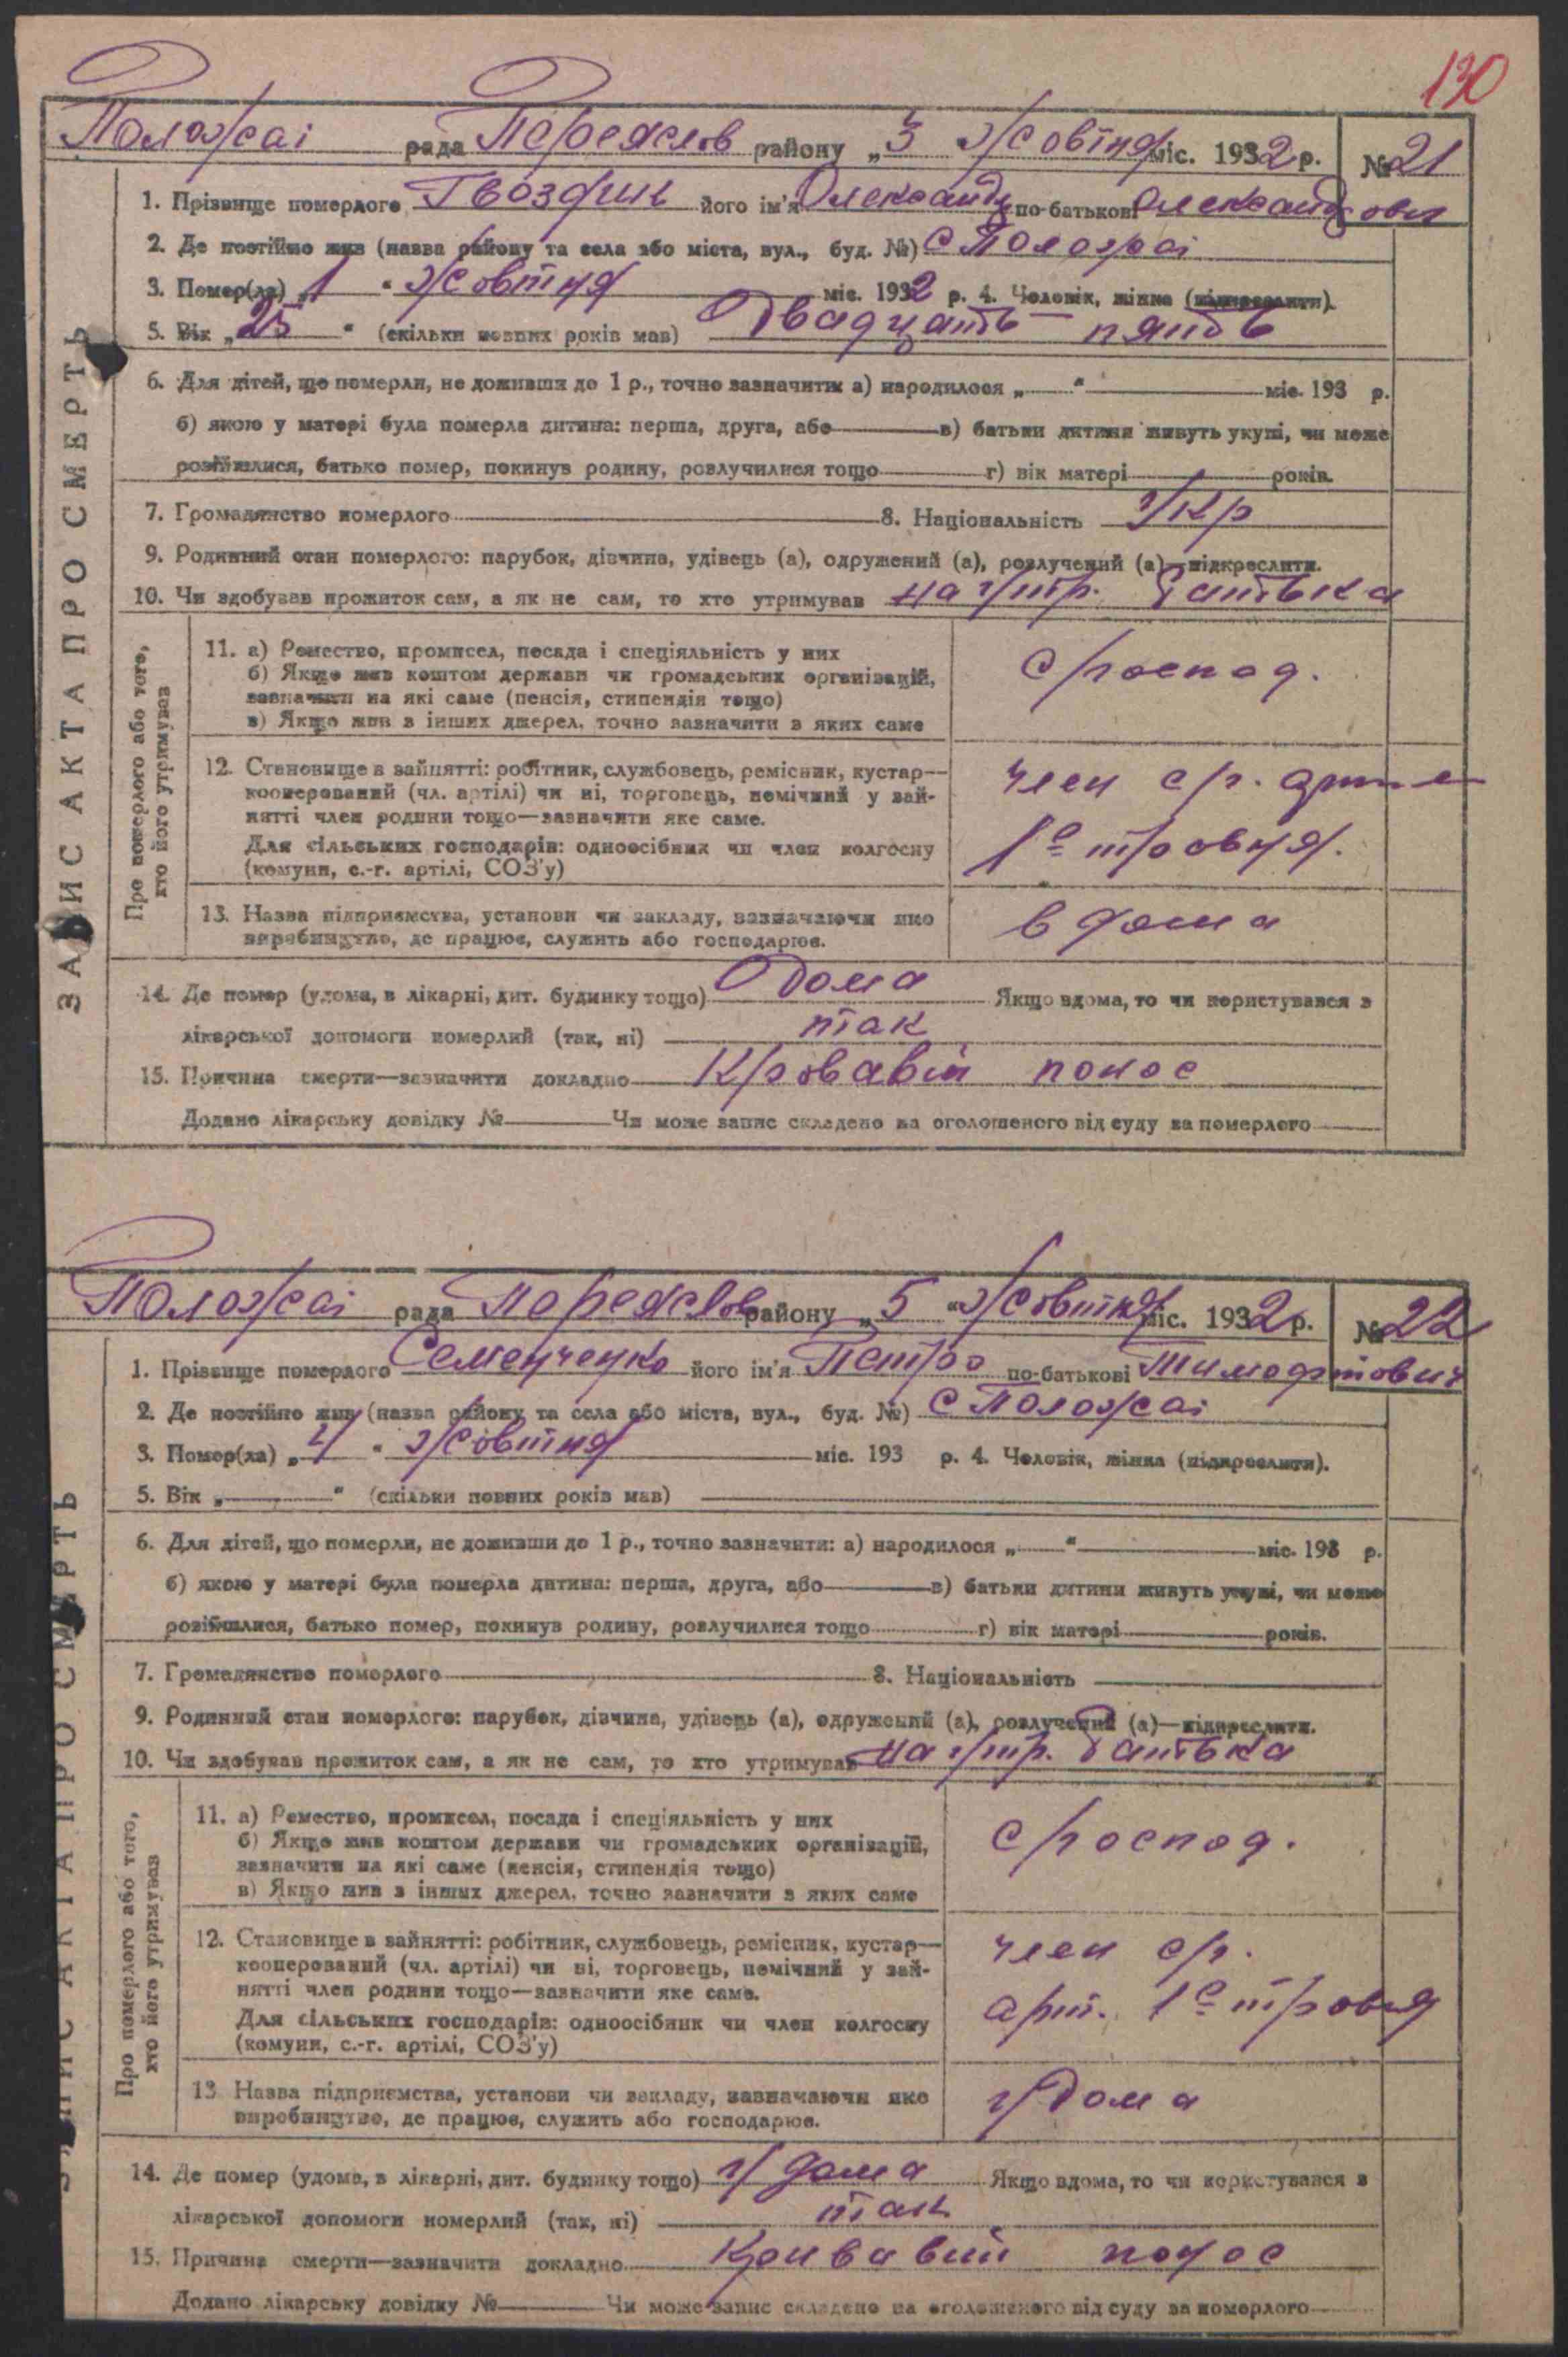 130
Положаї рада Переяслов району „3 жовтня міс. 1932 р. № 21
1. Прізвище померлого Гвоздик його ім'я Олександр по-батькові Олександрович
2. Де постійно жив (назва району та села або міста, вул., буд. №) с Положаї
3. Помер(ла) „1 " жовтня міс. 1932 р. 4. Чоловік, жінка (підкреслити).
5. Вік „25 " (скільки повних років мав) Двадцать пянть
6. Для дітей, що померли, не доживши до 1 р., точно зазначити: а) народилося „ " міс. 193 р.
б) якою у матері була померла дитина: перша, друга, або в) батьки дитини живуть укупі, чи може
розійшлися, батько помер, покинув родину, розлучилися тощо г) вік матері років.
7. Громадянство померлого 8. Національність Укр
9. Родинний стан померлого: парубок, дівчина, удівець (а), одружений (а), розлучений (а)—підкреслити.
10. Чи здобував прожиток сам, а як не сам, то хто утримував на утр. батька
ЗАПИС АКТА ПРО СМЕРТЬ
Про померлого або того, хто його утримував
11. а) Ремество, промисел, посада і спеціяльність у них
б) Якщо жив коштом держави чи громадських організацій,
зазначити на які саме (пенсія, стипендія тощо)
в) Якщо жив з інших джерел, точно зазначити з яких саме
с/господ.
12. Становище в зайнятті: робітник, службовець, ремісник, кустар—
кооперований (чл. артілі) чи ні, торговець, помічний у зай-
нятті член родини тощо—зазначити яке саме.
Для сільських господарів: одноосібник чи член колгоспу
(комуни, с.-г. артілі, СОЗ'у)
член с/г.
1е травня.
13. Назва підприємства, установи чи закладу, зазначаючи яке
виробництво, де працює, служить або господарює.
в дома
14. Де помер (удома, в лікарні, дит. будинку тощо) Дома Якщо вдома, то чи користувався з
лікарської допомоги померлий (так, ні) так
15. Причина смерти—зазначити докладно Кровавий понос
Додано лікарську довідку № Чи може запис складено на оголошеного від суду за померлого
Положаї рада Переяслов району „5 " жовтня міс. 1932 р. № 22
1. Прізвище померлого Семенченко його ім'я Петро по-батькові Тимофійович
2. Де постійно жив (назва району та села або міста, вул., буд. №) с Положаї
3. Помер(ла) „4 " жовтня міс. 193 р. 4. Чоловік, жінка (підкреслити).
5. Вік „ " (скільки повних років мав)
6. Для дітей, що померли, не доживши до 1 р., точно зазначити: а) народилося „ " міс. 193 р.
б) якою у матері була померла дитина: перша, друга, або в) батьки дитини живуть укупі, чи може
розійшлися, батько помер, покинув родину, розлучилися тощо г) вік матері років.
7. Громадянство померлого 8. Національність
9. Родинний стан померлого: парубок, дівчина, удівець (а), одружений (а), розлучений (а)—підкреслити.
10. Чи здобував прожиток сам, а як не сам, то хто утримував на утр. батька
ЗАПИС АКТА ПРО СМЕРТЬ
Про померлого або того, хто його утримував
11. а) Ремество, промисел, посада і спеціяльність у них
б) Якщо жив коштом держави чи громадських організацій,
зазначити на які саме (пенсія, стипендія тощо)
в) Якщо жив з інших джерел, точно зазначити з яких саме
с/господ.
12. Становище в зайнятті: робітник, службовець, ремісник, кустар—
кооперований (чл. артілі) чи ні, торговець, помічний у зай-
нятті член родини тощо—зазначити яке саме.
Для сільських господарів: одноосібник чи член колгоспу
(комуни, с.-г. артілі, СОЗ'у)
член с/г.
арт. 1е травня
13 Назва підприємства, установи чи закладу, зазначаючи яке
виробництво, де працює, служить або господарює.
у дома
14. Де помер (удома, в лікарні, дит. будинку тощо) у дома Якщо вдома, то чи користувався з
лікарської допомоги померлий (так, ні) так
15. Причина смерти—зазначити докладно Кривавий понос
Додано лікарську довідку № Чи може запис складено на оголошеного від суду за померлого